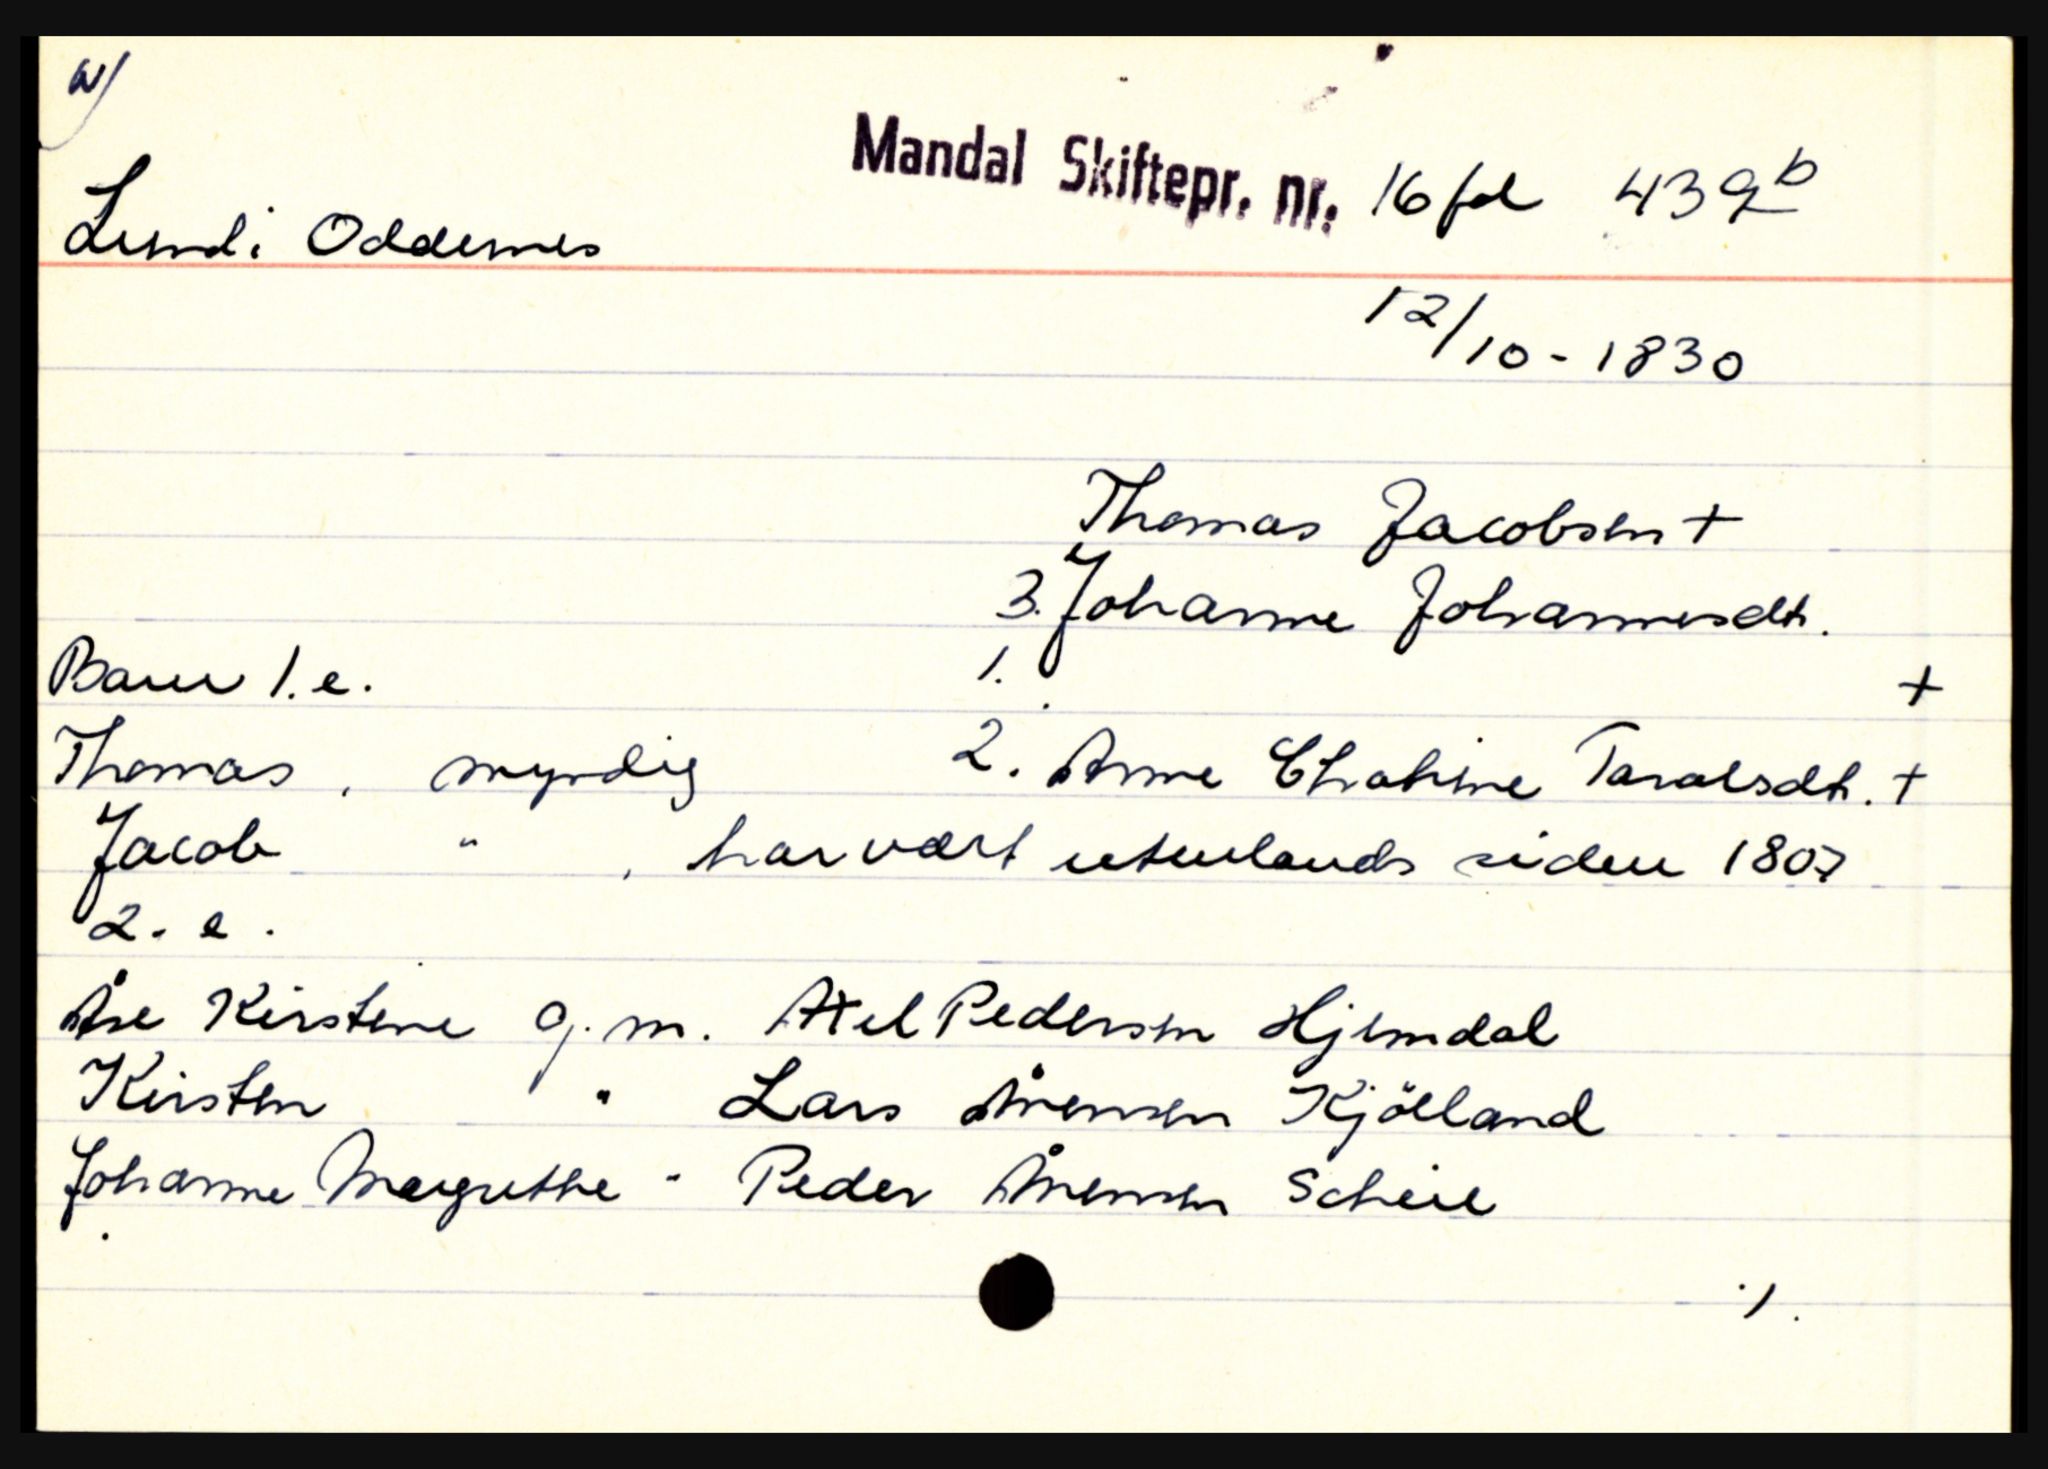 a)
Mandal Skiftepr. nr. 16 fol 439b
Lund i Oddernes
12/10-1830
Thomas Jacobsen +
3. Johanne Johannesdt.
Barn 1. e. 1. +
Thomas, myndig 2. Anne Chatrine Taralsdt. +
Jacob " , har vært utenlands siden 1807
2. e.
Åse Kirstine g. m. Axel Pedersen Hjemdal
Kirsten " LarsÅnensen Kjölland
Johanne Margrethe " Peder Ånensen Scheie
./.